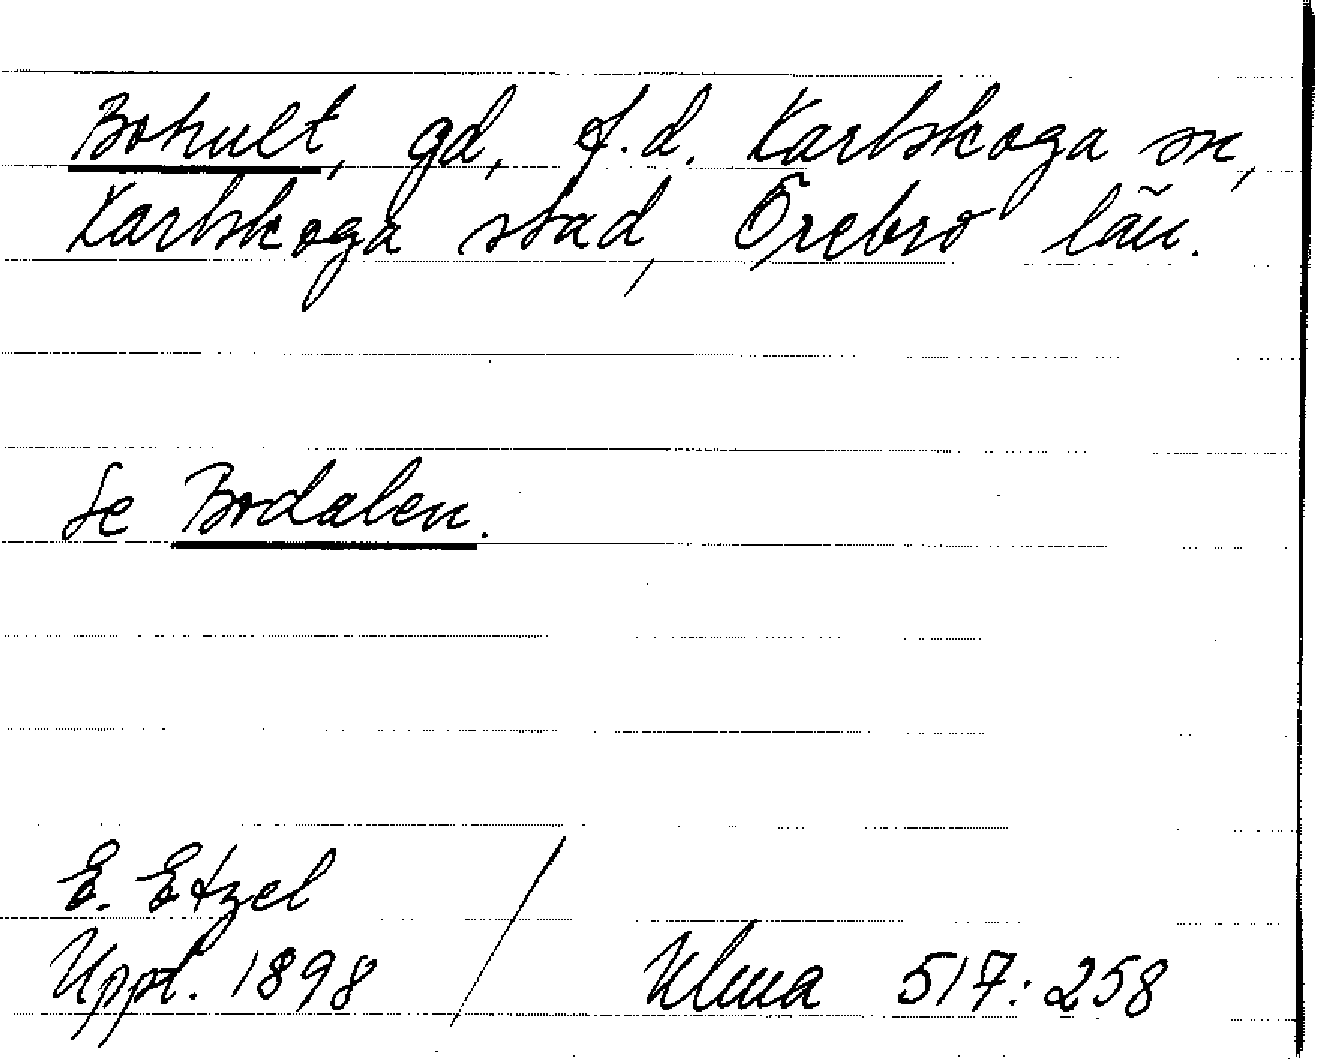 Bohult, gd, f.d. Karlskoga sn,
Karlskoga stad, Örebro län.
Se Bodalen.
E. Etzel
Uppt. 1898 / Ulma 517:258